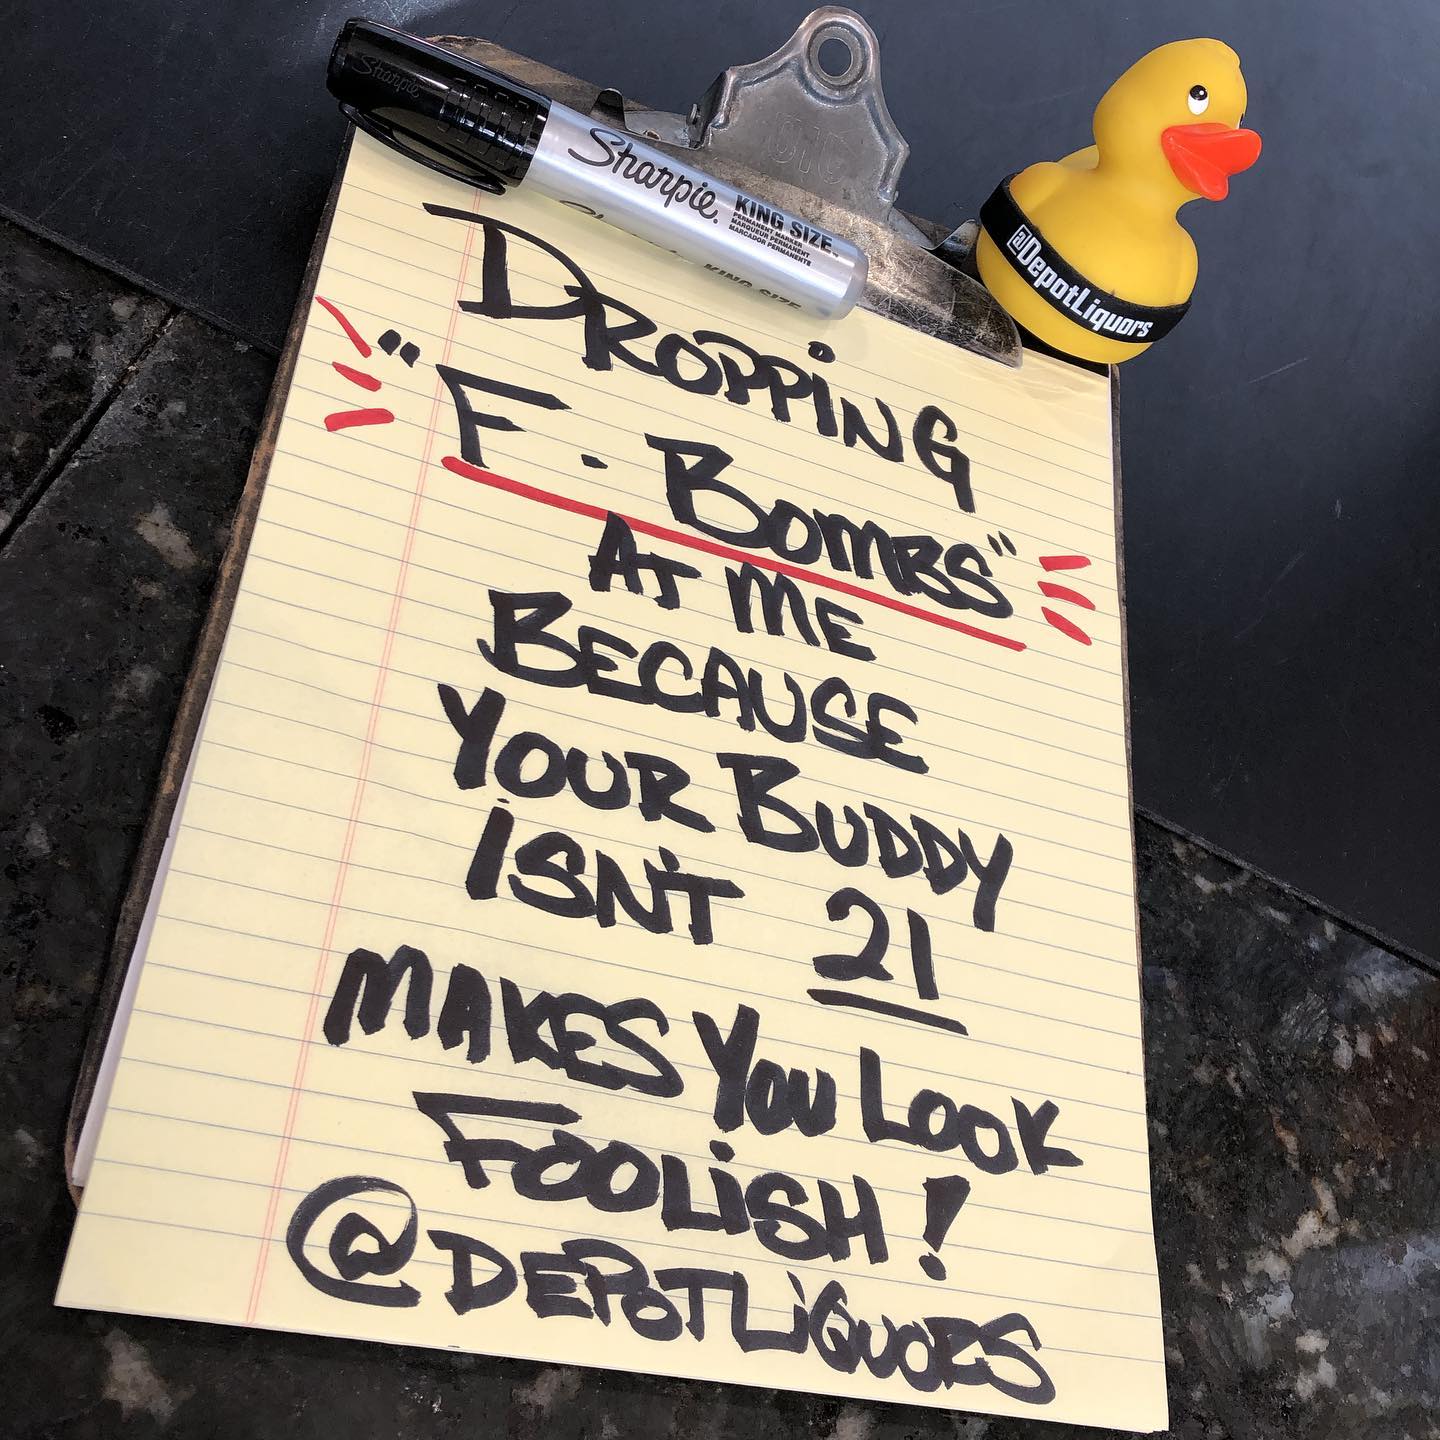 Sharpie
Sharpie.
KING SIZE™
PERMANENT MARKER
MARQUEUR PERMANENT
MARCADOR PERMANENTE
KING SIZE
@DepotLiquors
DROPPiNG
"F. BOMBS"
AT ME
BECAUSE
YOUR BUDDY
ISN'T 21
MAKES YOU LOOK
FOOLiSH!
@DEPOTLiQUORS